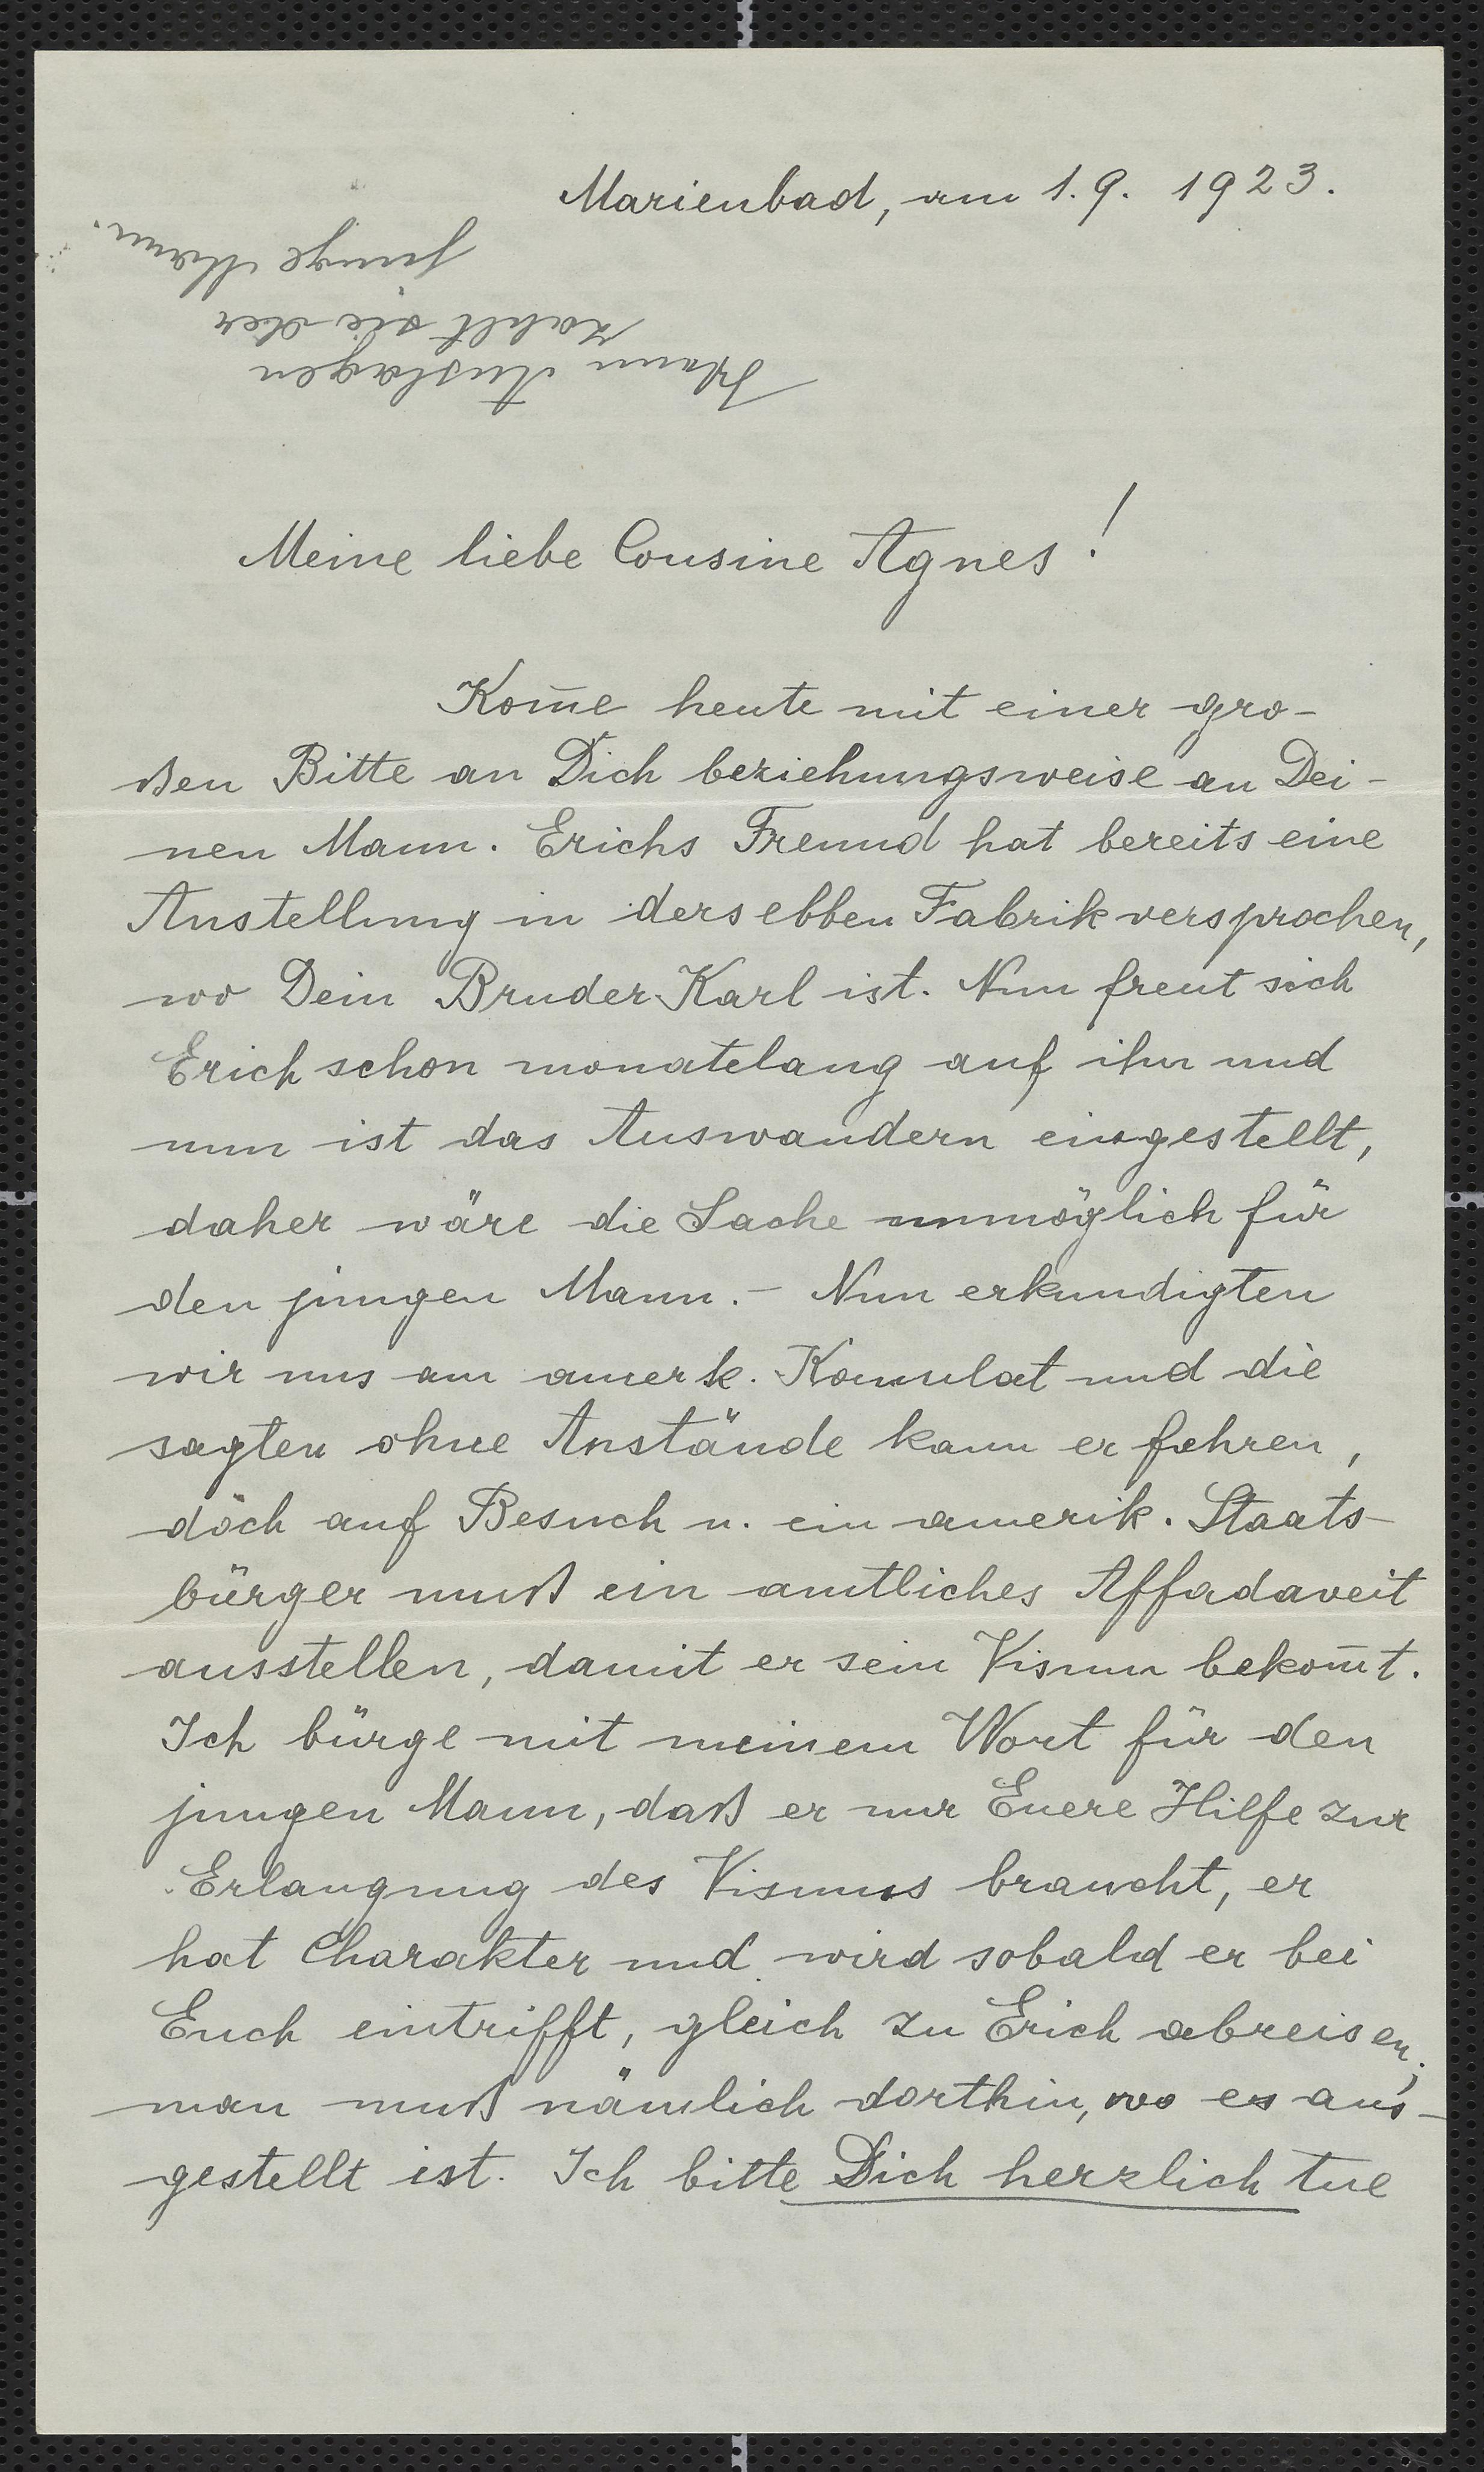 Marienbad, am 1.9. 1923.
Wenn Auslagen
zahlt sie der
junge Mann.
Meine liebe Cousine Agnes!
Kom̅e heute mit einer gro-
ßen Bitte an Dich beziehungsweise an Dei-
nen Mann. Erichs Freund hat bereits eine
Anstellung in dersebben Fabrik versprochen,
wo Dein Bruder Karl ist. Nun freut sich
Erich schon monatelang auf ihn und
nun ist das Auswandern eingestellt,
daher wäre die Sache unmöglich für
den jungen Mann. - Nun erkundigten
wir uns am amerk. Konsulat und die
sagten ohne Anstände kann er fahren,
doch auf Besuch u. ein amerik. Staats-
bürger muß ein amtliches Affadaveit
ausstellen, damit er sein Visum bekom̅t.
Ich bürge mit meinem Wort für den
jungen Mann, daß er nur Euere Hilfe zur
Erlangung des Visums braucht, er
hat Charakter und wird sobald er bei
Euch eintrifft, gleich zu Erich abreisen;
man muß nämlich dorthin, wo es aus-
gestellt ist. Ich bitte Dich herzlich tue